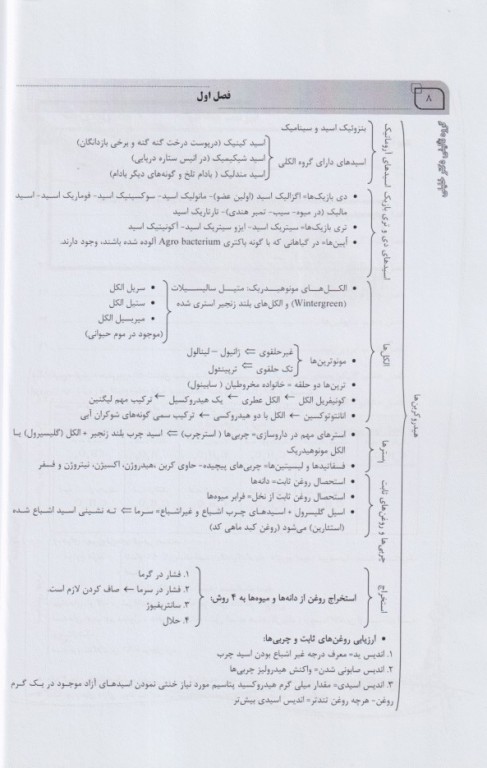 ۸
فصل اول
هیدروکربن‌ها
اسیدهای آروماتیک
بنزوئیک اسید و سینامیک
اسیدهای دارای گروه الکلی
اسید کینیک (درپوست درخت گنه گنه و برخی بازدانگان)
اسید شیکیمیک (در انیس ستاره دریایی)
اسید مندلیک ( بادام تلخ و گونه‌های دیگر بادام)
اسیدهای دی و تری بازیک
• دی بازیک‌ها= اگزالیک اسید (اولین عضو)- مانولیک اسید- سوکسینیک اسید- فوماریک اسید- اسید
مالیک (در میوه- سیب- تمبر هندی)- تارتاریک اسید
• تری بازیک‌ها= سیتریک اسید- ایزو سیتریک اسید- آکونیتیک اسید
• آپین‌ها= در گیاهانی که با گونه باکتری Agro bacterium آلوده شده باشند، وجود دارند.
الکل‌ها
• الکل‌های مونوهیدریک: متیل سالیسیلات
(Wintergreen) و الکل‌های بلند زنجیر استری شده
• سریل الکل
• ستیل الکل
• میریسیل الکل
(موجود در موم حیوانی)
• مونوترپن‌ها
غیرحلقوی ⇐ ژانیول – لینالول
تک حلقوی ⇐ ترپینئول
• ترپن‌ها دو حلقه = خانواده مخروطیان ( سابینول)
• کونیفریل الکل ← الکل عطری ← یک هیدروکسیل ← ترکیب مهم لیگنین
• اناتوتوکسین ← الکل با دو هیدروکسی ← ترکیب سمی گونه‌های شوکران آبی
استرها
• استرهای مهم در داروسازی= چربی‌ها ( استرچرب) ⇐ اسید چرب بلند زنجیر + الکل (گلیسیرول) یا
الکل مونوهیدریک
• فسفاتیدها و لیسیتین‌ها= چربی‌های پیچیده- حاوی کربن ،هیدروژن، اکسیژن، نیتروژن و فسفر
چربی‌ها و روغن‌های ثابت
• استحصال روغن ثابت= دانه‌ها
• استحصال روغن ثابت از نخل= فرابر میوه‌ها
• اسیل گلیسرول + اسیدهای چرب اشباع و غیراشباع= سرما ← ته نشینی اسید اشباع شده
(استئارین) می‌شود (روغن کبد ماهی کد)
استخراج
استخراج روغن از دانه‌ها و میوه‌ها به ۴ روش:
۱. فشار در گرما
۲. فشار در سرما ← صاف کردن لازم است.
۳. سانتریفیوژ
۴. حلال
• ارزیابی روغن‌های ثابت و چربی‌ها:
۱. اندیس ید= معرف درجه غیر اشباع بودن اسید چرب
۲. اندیس صابونی شدن= واکنش هیدرولیز چربی‌ها
۳. اندیس اسیدی= مقدار میلی گرم هیدروکسید پتاسیم مورد نیاز خنثی نمودن اسیدهای آزاد موجود در یک گرم
روغن- هرچه روغن تندتر= اندیس اسیدی بیش‌تر